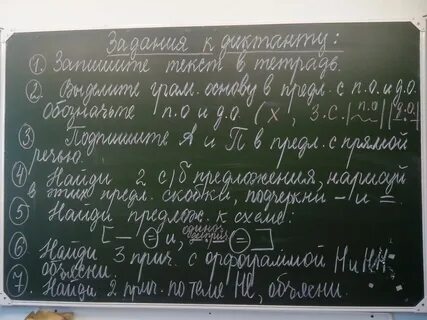 Задания к диктанту:
1. Запишите текст в тетрадь.
2. Выделите грам. основу в предл. с п.о. и д.о.
обозначьте п.о и д.о. (X, З.С. |п.о| |д.о.|
3 Подпишите А и П в предл. с прямой
речью.
4 Найди 2 с/б предложения, нарисуй
в этих предл. скобки, подчеркни – и =.
5 Найди предлож. к схеме:
[ – = и, одиноч. дееприч. = ]
6 Найди 3 прич. с орфограммой Н и НН,
объясни.
7. Найди 2 прич. по теме НЕ, объясни.